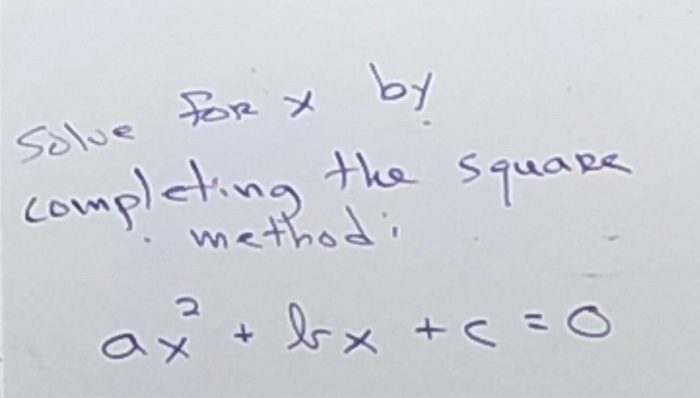 Solve for x by
completing the square
method:
ax² + bx + c = 0